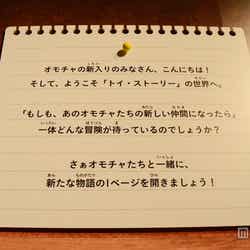 オモチャの新入りのみなさん、こんにちは！
そして、ようこそ「トイ・ストーリー」の世界へ。
「もしも、あのオモチャたちの新しい仲間になったら」
一体どんな冒険が待っているのでしょうか？
さぁオモチャたちと一緒に、
新たな物語の1ページを開きましょう！